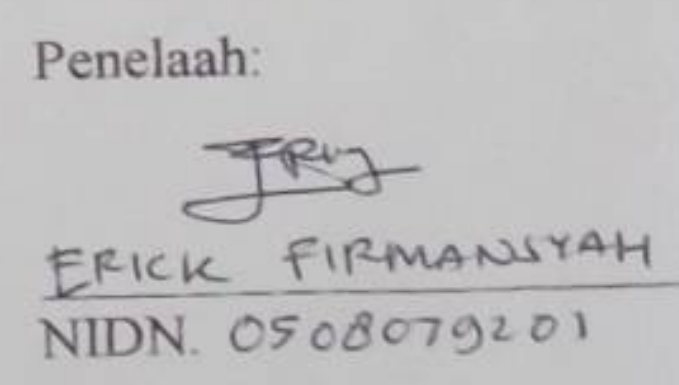 Penelaah:
ERICK FIRMANSYAH
NIDN. 0508079201